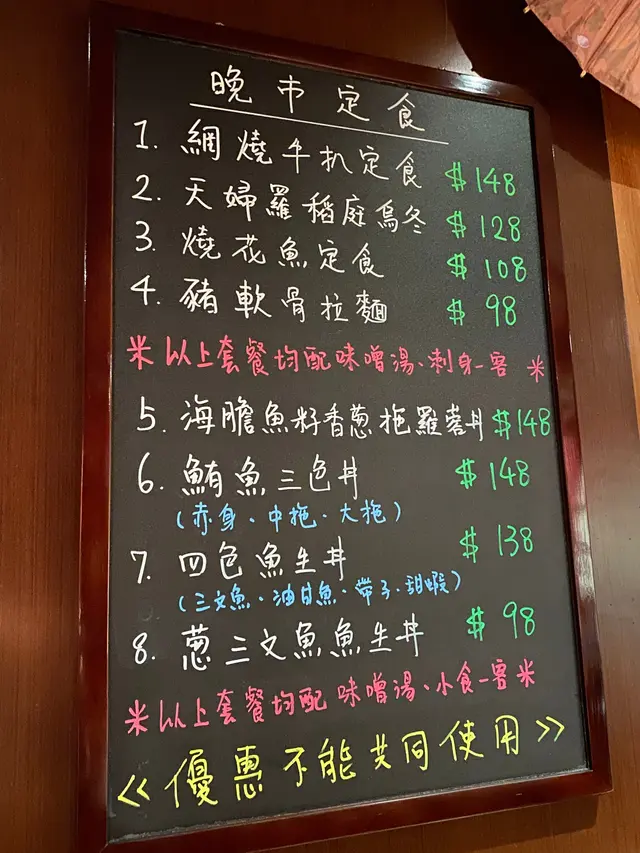 晚市定食
1. 網燒牛扒定食 $148
2. 天婦羅稻庭烏冬 $128
3. 燒花魚定食 $108
4. 豬軟骨拉麵 $98
米以上套餐均配味噌湯、刺身一客米
5. 海膽魚籽香蔥拖羅蓉丼 $148
6. 鮪魚三色丼 $148
(赤身、中拖、大拖)
7. 四色魚生丼 $138
(三文魚、油甘魚、帶子、甜蝦)
8. 蔥三文魚魚生丼 $98
米以上套餐均配味噌湯、小食一客米
<<優惠不能共同使用>>